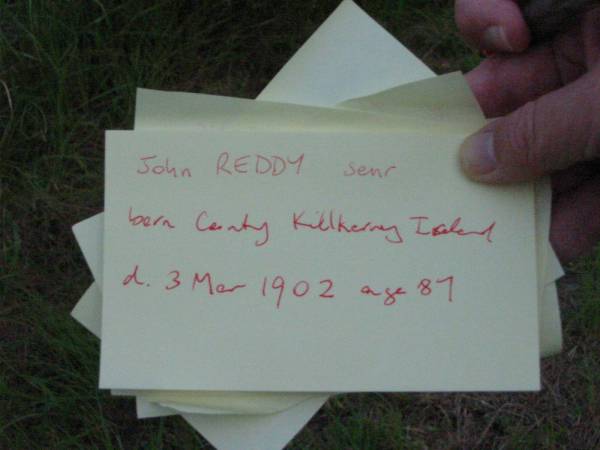 John REDDY senr
born County Killkenny Ireland
d. 3 Mar 1902 age 87